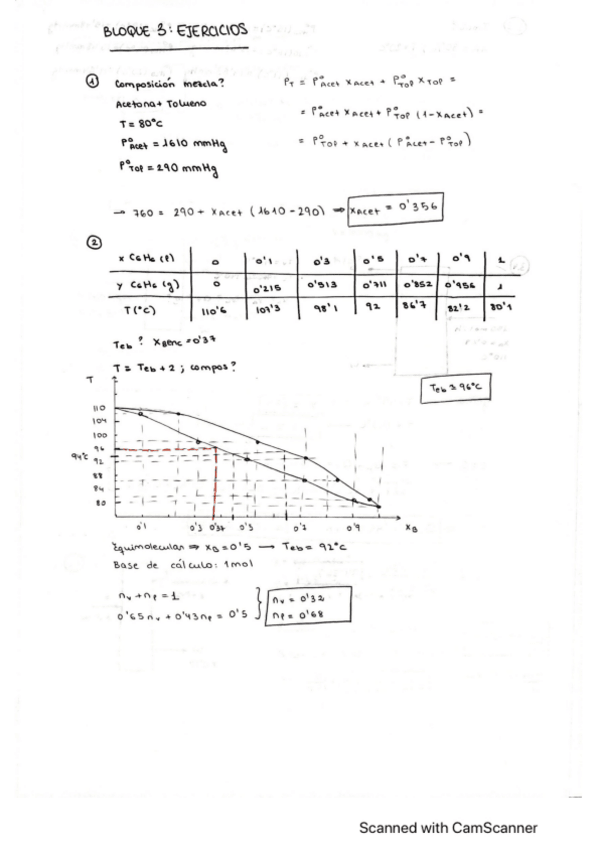 BLOQUE 3: EJERCICIOS
① Composición mezcla?
Acetona + Tolueno
T = 80°C
P°Acet = 1610 mmHg
P°TOP = 290 mmHg
PT = P°Acet xAcet + P°TOP xTOP =
= P°Acet xAcet + P°TOP (1-xAcet) =
= P°TOP + xAcet (P°Acet - P°TOP)
→ 760 = 290 + xAcet (1610-290) ⇒ xAcet = 0'356
②
x C6H6 (l) 0 0'1 0'3 0'5 0'7 0'9 1
y C6H6 (g) 0 0'215 0'513 0'711 0'852 0'956 1
T(°C) 110'6 107'3 98'1 92 86'7 82'2 80'1
Teb? xBenc = 0'37
T = Teb + 2 ; compos?
Teb ≈ 96°C
T
110
104
100
96
94°C
92
88
84
80
0'1 0'3 0'37 0'5 0'7 0'9 xB
Equimolecular ⇒ xB = 0'5 → Teb = 92°C
Base de cálculo: 1mol
nv + nl = 1
0'65nv + 0'43nl = 0'5
nv = 0'32
nl = 0'68
Scanned with CamScanner